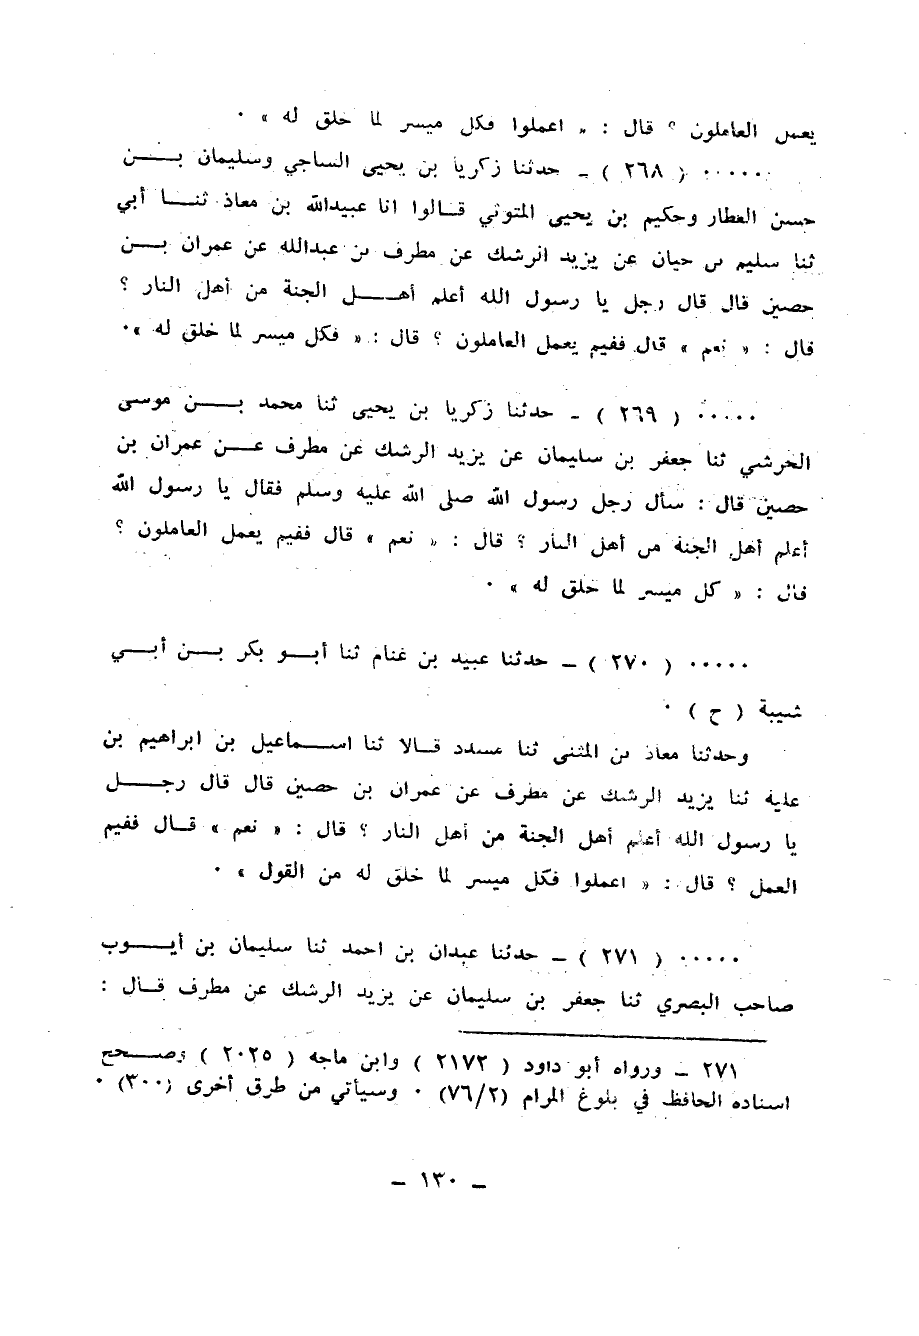 يعمل العاملون ؟ قال : « اعملوا فكل ميسر لما خلق له » .
..... ( ٢٦٨ ) ـ حدثنا زكريا بن يحيى الساجي وسليمان بـــن
حسن العطار وحكيم بن يحيى المتوثي قـالوا انا عبيدالله بن معاذ ثنـــا أبي
ثنا سليم بن حيان عن يزيد الرشك عن مطرف بن عبدالله عن عمران بـــن
حصين قال قال رجل يا رسول الله أعلم أهـــل الجنة من أهل النار ؟
قال : « نعم » قال ففيم يعمل العاملون ؟ قال : « فكل ميسر لما خلق له ».
..... ( ٢٦٩ ) ـ حدثنا زكريا بن يحيى ثنا محمد بـــن موسى
الحرشي ثنا جعفر بن سليمان عن يزيد الرشك عن مطرف عـــن عمران بن
حصين قال : سأل رجل رسول الله صلى الله عليه وسلم فقال يا رسول الله
أعلم أهل الجنة من أهل النار ؟ قال : « نعم » قال ففيم يعمل العاملون ؟
قال : « كل ميسر لما خلق له » .
..... ( ٢٧٠ ) ـ حدثنا عبيد بن غنام ثنا أبـــو بكر بـــن أبـــي
شيبة ( ح ) .
وحدثنا معاذ بن المثنى ثنا مسدد قـالا ثنا اسـماعيل بن ابراهيم بن
علية ثنا يزيد الرشك عن مطرف عن عمران بن حصين قال قال رجـــل
يا رسول الله أعلم أهل الجنة من أهل النار ؟ قال : « نعم » قـال ففيم
العمل ؟ قال : « اعملوا فكل ميسر لما خلق له من القول » .
..... ( ٢٧١ ) ـ حدثنا عبدان بن احمد ثنا سليمان بن أيـــوب
صاحب البصري ثنا جعفر بن سليمان عن يزيد الرشك عن مطرف قـال :
٢٧١ ـ ورواه أبو داود ( ٢١٧٢ ) وابن ماجه ( ٢٠٢٥ ) وصـــحح
اسناده الحافظ في بلوغ المرام (٧٦/٢) . وسيأتي من طرق أخرى (٣٠٠) .
ـ ١٣٠ ـ